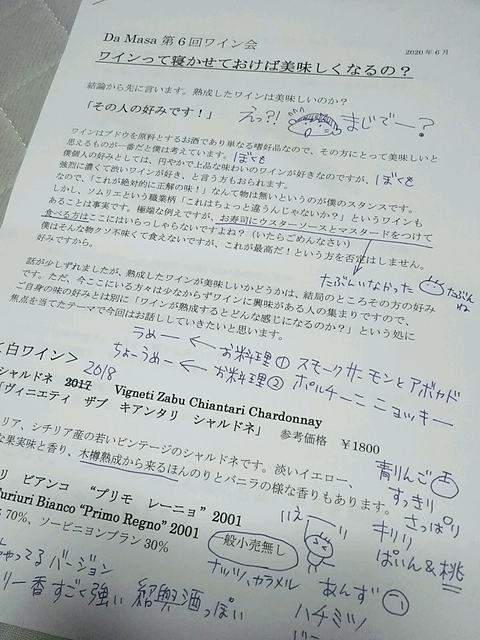 Da Masa 第6回ワイン会
2020年6月
ワインって寝かせておけば美味しくなるの？
結論から先に言います。熟成したワインは美味しいのか？
「その人の好みです！」
えっ?!
まじでー？
ワインはブドウを原料とするお酒であり単なる嗜好品なので、その方にとって美味しいと
思えるものが一番だと僕は考えています。ぼくも
僕個人の好みとしては、円やかで上品な味わいのワインが好きなのですが、ぼくも
強烈に濃くて渋いワインが好き、と言う方もおられます。
なので、「これが絶対的に正解の味！」なんて物は無いというのが僕のスタンスです。
しかし、ソムリエという職業柄「これはちょっと違うんじゃないか？」というワインも
あることは事実です。極端な例えですが、お寿司にウスターソースとマスタードをつけて
食べる方はここにはいらっしゃらないですよね？（いたらごめんなさい）
僕はそんな物クソ不味くて食えないですが、これが最高だ！という方を否定はしません。
好みですから。
たぶんいなかった
たぶんね
話が少しずれましたが、熟成したワインが美味しいかどうかは、結局のところその方の好み
です。ただ、今ここにいる方々は少なからずワインに興味がある人の集まりですので、
ご自身の味の好みとは別に「ワインが熟成するとどんな感じになるのか？」という処に
焦点を当てたテーマで今回はお話ししていきたいと思います。
うめー ← お料理① スモークサーモンとアボカド
ちょーうめー ← お料理② ポルチーニニョッキー
白ワイン＞
2018
シャルドネ 2017 Vigneti Zabu Chiantari Chardonnay
「ヴィニエティ ザブ キアンタリ シャルドネ」 参考価格 ￥1800
リア、シチリア産の若いビンテージのシャルドネです。淡いイエロー、
な果実味と香り、木樽熟成から来るほんのりとバニラの様な香りもあります。
青りんご
すっきり
さっぱり
キリリ
ぱいん＆桃
リ ビアンコ “プリモ レーニョ” 2001
uriuri Bianco “Primo Regno” 2001
70%、ソービニヨンブラン 30%
一般小売無し
いえー
ナッツ、カラメル
ちゃってるバージョン
リー香すごく強い 紹興酒っぽい
あんず
ハチミツ